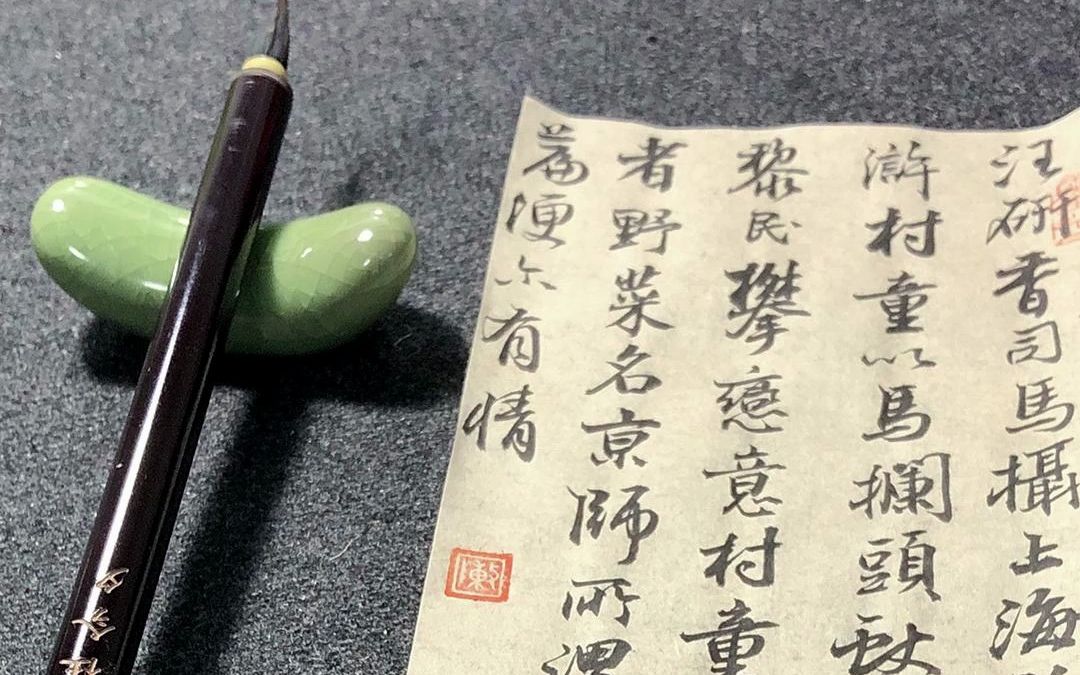 汪研香司馬攝上海
滸村童以馬攔頭
黎民攀戀意村童
者野菜名京師所謂
篇便尒有情